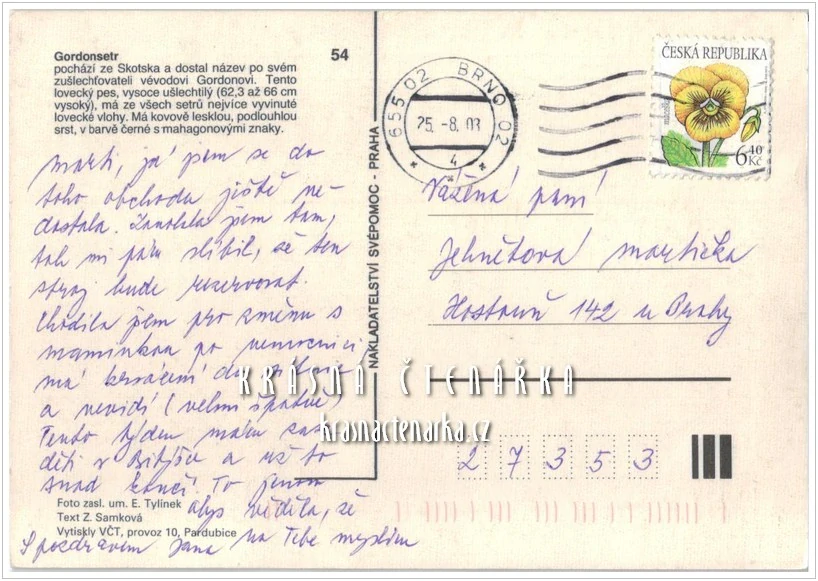 Gordonsetr 54
pochází ze Skotska a dostal název po svém
zušlechťovateli vévodovi Gordonovi. Tento
lovecký pes, vysoce ušlechtilý (62,3 až 66 cm
vysoký), má ze všech setrů nejvíce vyvinuté
lovecké vlohy. Má kovově lesklou, podlouhlou
srst, v barvě černé s mahagonovými znaky.
Marti, já jsem se do
toho obchodu ještě ne-
dostala. Zavolala jsem tam,
tak mi pán slíbil, že ten
stroj bude rezervovat.
Chodila jsem pro změnu s
maminkou po nemocnici,
má krvácení do
a nevidí (velmi špatně)
Tento týden mám zas
děti v Bítýšce a už to
snad končí. To jenom
abys věděla, že
na Tebe myslím
S pozdravem Jana
Foto zasl. um. E. Tylínek
Text Z. Samková
Vytiskly VČT, provoz 10, Pardubice
NAKLADATELSTVÍ SVÉPOMOC - PRAHA
655 02 BRNO 02
25. -8. 03
4
ČESKÁ REPUBLIKA
6,40
Kč
Vážená paní
Jehnětová Martička
Hostouň 142 u Prahy
27353
KRÁSNÁ ČTENÁŘKA
krasnactenarka.cz